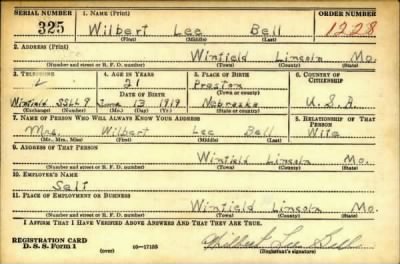 SERIAL NUMBER 1. NAME (Print) ORDER NUMBER
325 Wilbert Lee Bell 1228
(First) (Middle) (Last)
2. ADDRESS (Print)
Winfield Lincoln Mo.
(Number and street or R. F. D. number) (Town) (County) (State)
3. TELEPHONE 4. AGE IN YEARS 5. PLACE OF BIRTH 6. COUNTRY OF CITIZENSHIP
21 Preston
DATE OF BIRTH (Town or county)
Winfield 55LL9 June 13 1919 Nebraska U.S.A.
(Exchange) (Number) (Mo.) (Day) (Yr.) (State or country)
7. NAME OF PERSON WHO WILL ALWAYS KNOW YOUR ADDRESS 8. RELATIONSHIP OF THAT PERSON
Mrs. Wilbert Lee Bell Wife
(Mr., Mrs., Miss) (First) (Middle) (Last)
9. ADDRESS OF THAT PERSON
Winfield Lincoln Mo.
(Number and street or R. F. D. number) (Town) (County) (State)
10. EMPLOYER'S NAME
Self
11. PLACE OF EMPLOYMENT OR BUSINESS
Winfield Lincoln Mo.
(Number and street or R. F. D. number) (Town) (County) (State)
I AFFIRM THAT I HAVE VERIFIED ABOVE ANSWERS AND THAT THEY ARE TRUE.
REGISTRATION CARD
D. S. S. Form 1 (over) 16—17105 Wilbert Lee Bell
(Registrant's signature)